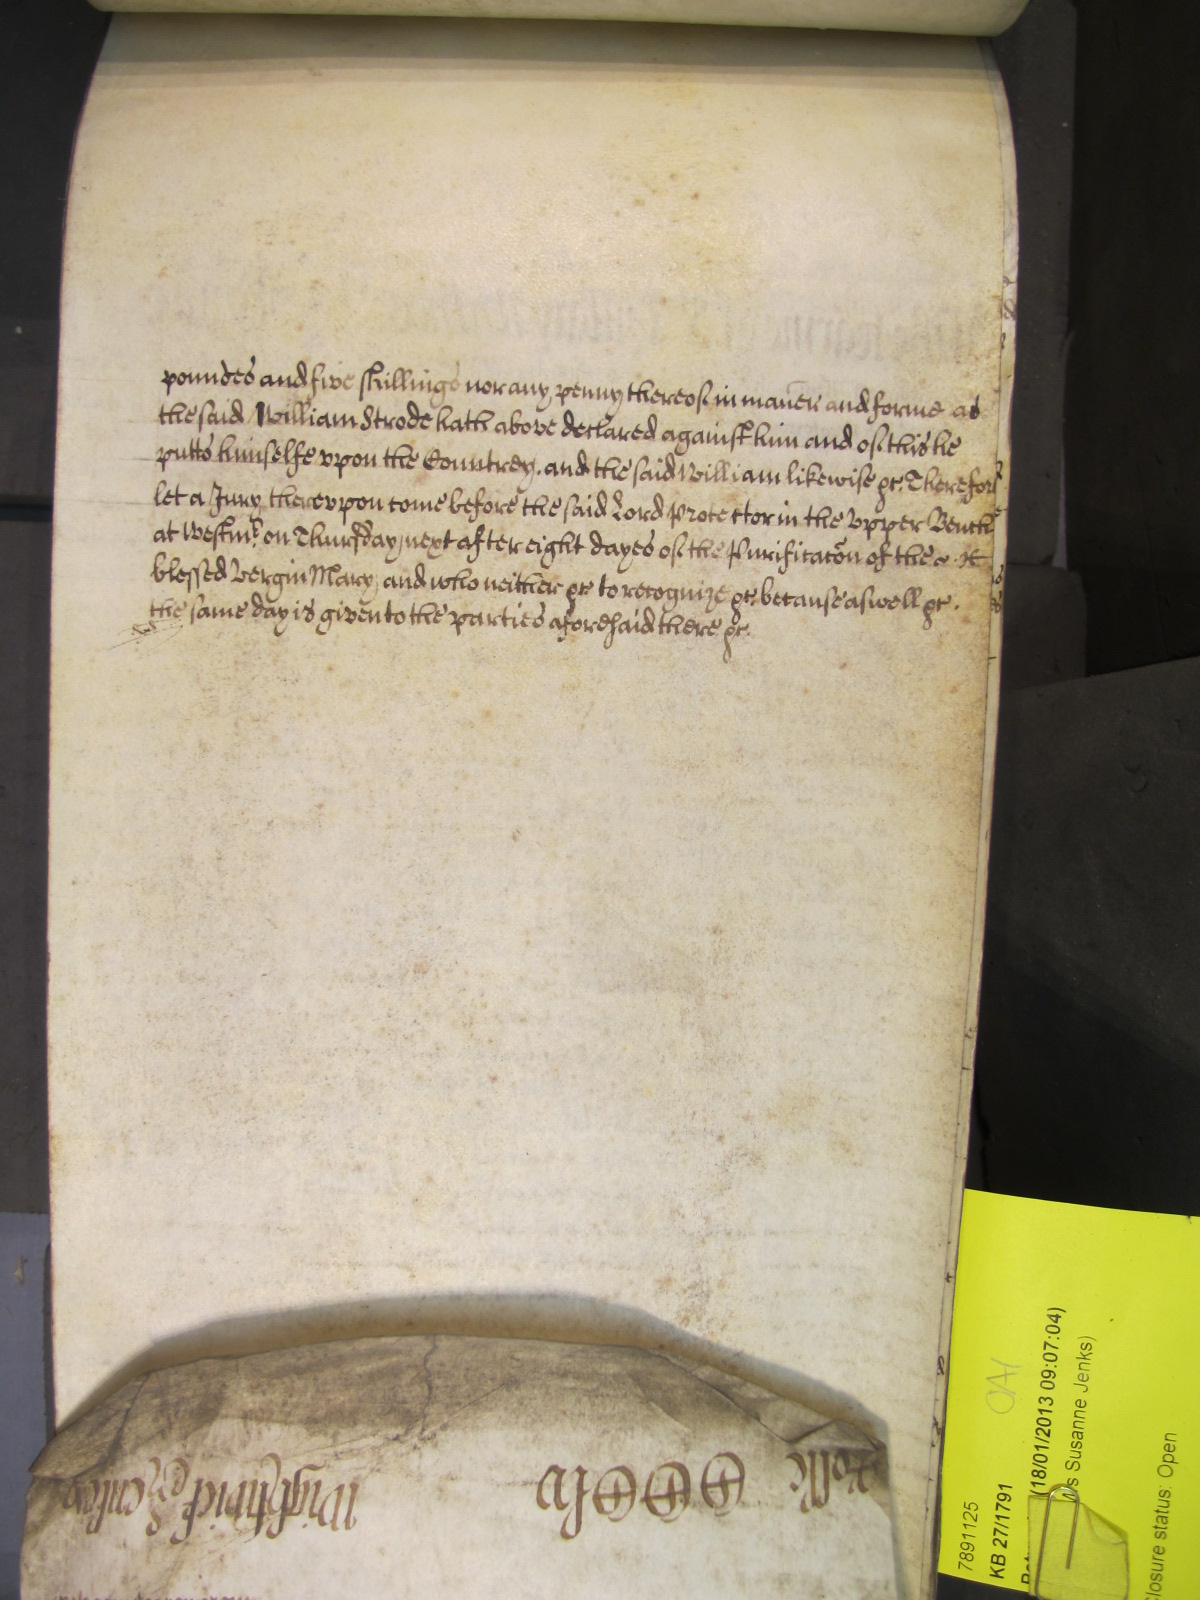 poundes and five shillings nor any penny thereof in maner and forme as
the said William Strode hath above declared against him and of this he
putts himselfe vpon the Countrey. and the said William likewise &c. Therefore
let a Jury therevpon come before the said Lord Protector in the vpper Bench
at Westmr. on Thursday next after eight dayes of the Purificacon of the
blessed Vergin Mary, and who neither &c to recognize &c. because aswell &c.
the same day is given to the parties aforesaid there &c.
Rolle
Wightwick &
7891125
KB 27/1791
(18/01/2013 09:07:04)
s Susanne Jenks)
Closure status: Open